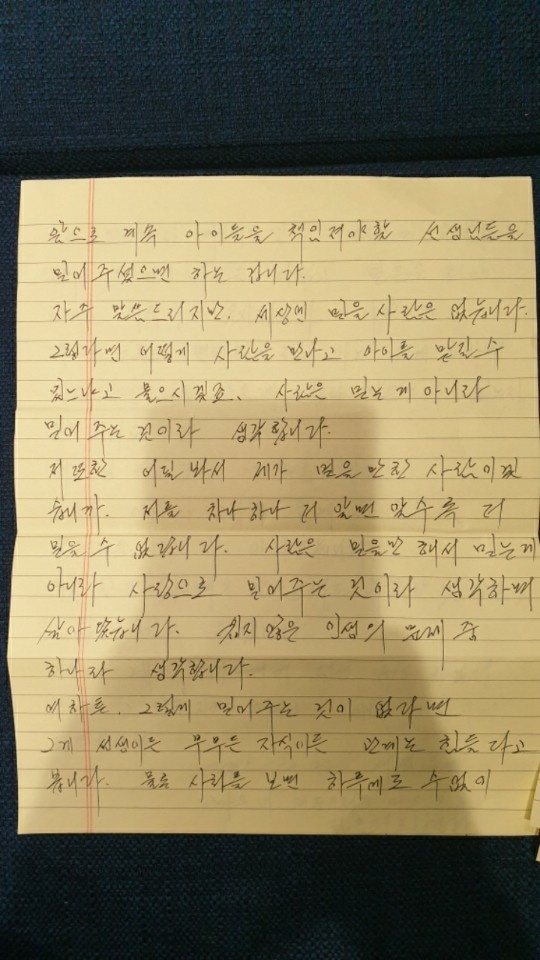 앞으로 계속 아이들을 책임져야할 선생님들을
믿어주셨으면 하는 겁니다.
자주 말씀드리지만. 세상에 믿을 사람은 없습니다.
그렇다면 어떻게 사람을 만나고 아이를 맡길 수
있느냐고 물으시겠죠. 사람은 믿는게 아니라
믿어 주는 것이라 생각합니다.
저 또한 어딜 봐서 제가 믿을 만한 사람이겠
습니까. 저를 하나하나 더 알면 알수록 더
믿을 수 없답니다. 사람은 믿을만 해서 믿는게
아니라 사랑으로 믿어주는 것이라 생각하며
살아 왔습니다. 쉽지 않은 인생의 문제 중
하나라 생각합니다.
여하튼. 그렇게 믿어주는 것이 없다면
그게 선생이든 부부든 자식이든 관계는 힘들다고
봅니다. 물론 사회를 보면 하루에도 수없이